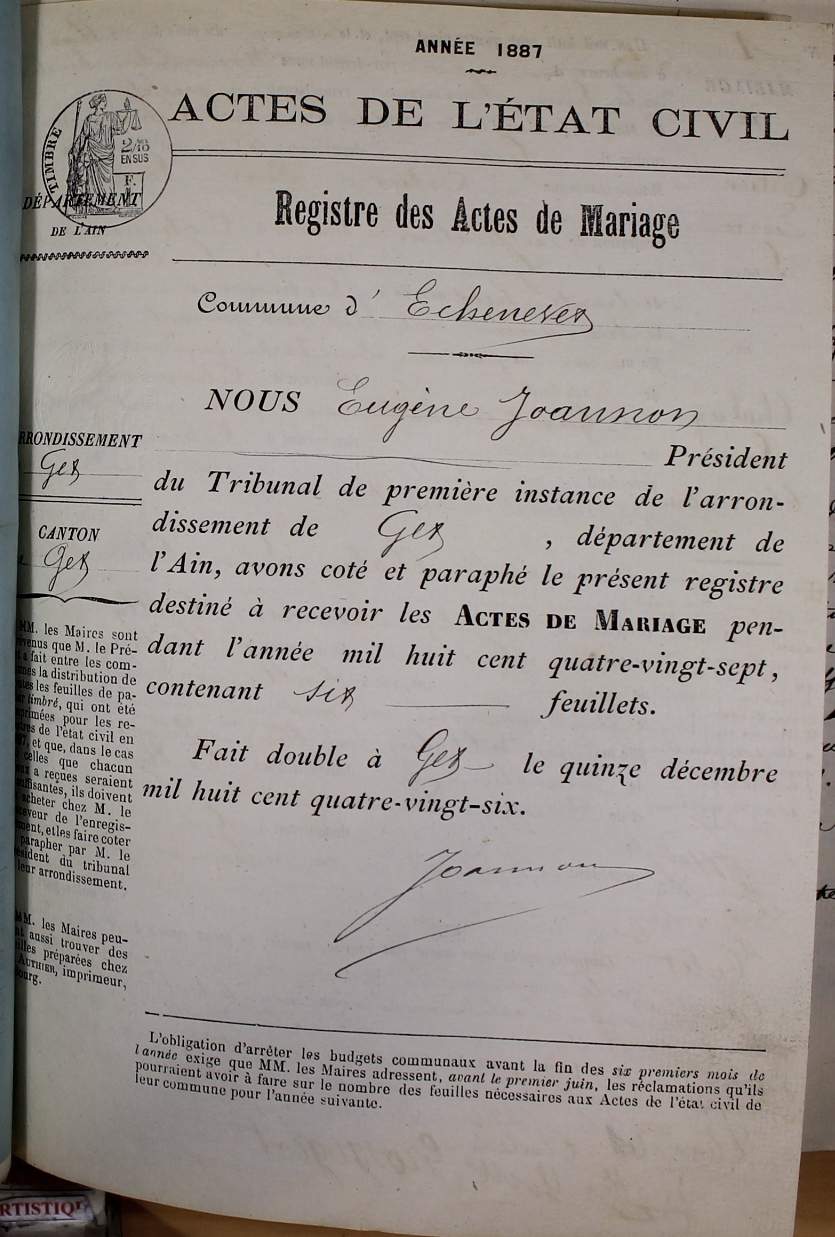 ANNÉE 1887
ACTES DE L'ÉTAT CIVIL
TIMBRE
2/10
EN SUS
DÉPARTEMENT
DE L'AIN
Registre des Actes de Mariage
Commune d' Echenevex
NOUS Eugène Joannon
Président
du Tribunal de première instance de l'arron-
dissement de Gex, département de
l'Ain, avons coté et paraphé le présent registre
destiné à recevoir les ACTES DE MARIAGE pen-
dant l'année mil huit cent quatre-vingt-sept,
contenant six feuillets.
Fait double à Gex le quinze décembre
mil huit cent quatre-vingt-six.
Joannon
RRONDISSEMENT
Gex
CANTON
Gex
MM. les Maires sont
venus que M. le Pré-
fait entre les com-
la distribution de
les feuilles de pa-
timbré, qui ont été
primées pour les re-
de l'état civil en
et que, dans le cas
celles que chacun
a reçues seraient
suffisantes, ils doivent
acheter chez M. le
ceveur de l'enregis-
ment, et les faire coter
parapher par M. le
sident du tribunal
leur arrondissement.
MM. les Maires peu-
aussi trouver des
préparées chez
AUTHIER, imprimeur,
ourg.
L'obligation d'arrêter les budgets communaux avant la fin des six premiers mois de
l'année exige que MM. les Maires adressent, avant le premier juin, les réclamations qu'ils
pourraient avoir à faire sur le nombre des feuilles nécessaires aux Actes de l'état civil de
leur commune pour l'année suivante.
RTISTIQ